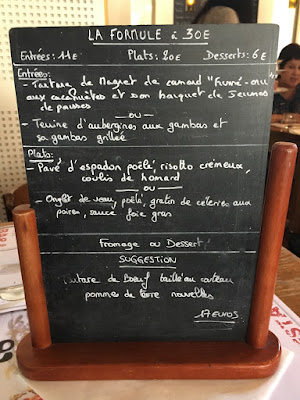 LA FORMULE à 30€
Entrées: 11€ Plats: 20€ Desserts: 6€
Entrées:
- Tartare de Magret de canard "Fumé-
aux cacahuètes et son bouquet de Jeunes
de pousses
ou
- Terrine d'aubergines aux gambas et
sa gambas grillée
Plats:
- Pavé d'espadon poêlé, risotto crémeux,
coulis de homard
ou
- Onglet de veau, poêlé, gratin de céleries aux
poires, sauce foie gras
Fromage ou Dessert!
SUGGESTION
Tartare de Bœuf taillé au couteau
pommes de terre nouvelles
17 EUROS